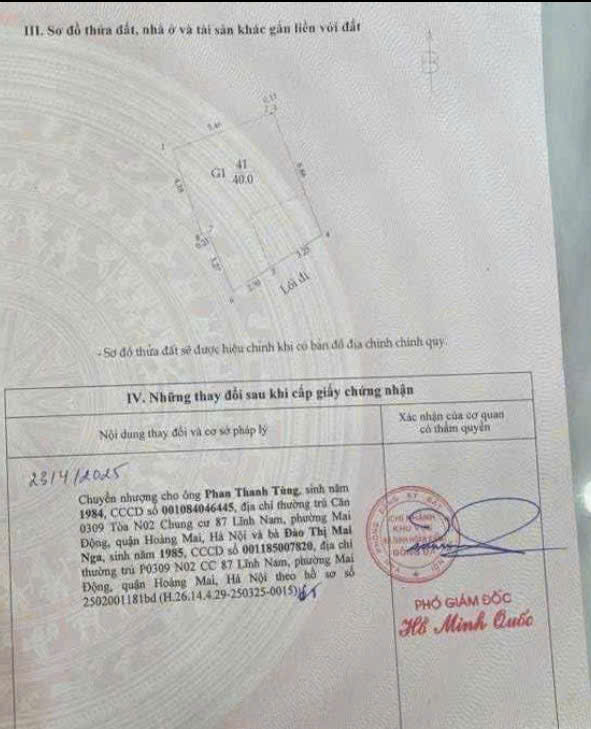 III. Sơ đồ thửa đất, nhà ở và tài sản khác gắn liền với đất
B
0.13
5.46
1
2
3
G1 41
40.0
4
3.25
5
2.90
6
Lối đi
- Sơ đồ thửa đất sẽ được hiệu chỉnh khi có bản đồ địa chính chính quy.
IV. Những thay đổi sau khi cấp giấy chứng nhận
Nội dung thay đổi và cơ sở pháp lý
Xác nhận của cơ quan
có thẩm quyền
23/4/2025
Chuyển nhượng cho ông Phan Thanh Tùng, sinh năm
1984, CCCD số 001084046445, địa chỉ thường trú Căn
0309 Tòa N02 Chung cư 87 Lĩnh Nam, phường Mai
Động, quận Hoàng Mai, Hà Nội và bà Đào Thị Mai
Nga, sinh năm 1985, CCCD số 001185007820, địa chỉ
thường trú P0309 N02 CC 87 Lĩnh Nam, phường Mai
Động, quận Hoàng Mai, Hà Nội theo hồ sơ số
2502001181bd (H.26.14.4.29-250325-0015)
CHI NHÁNH
PHÓ GIÁM ĐỐC
Hồ Minh Quốc